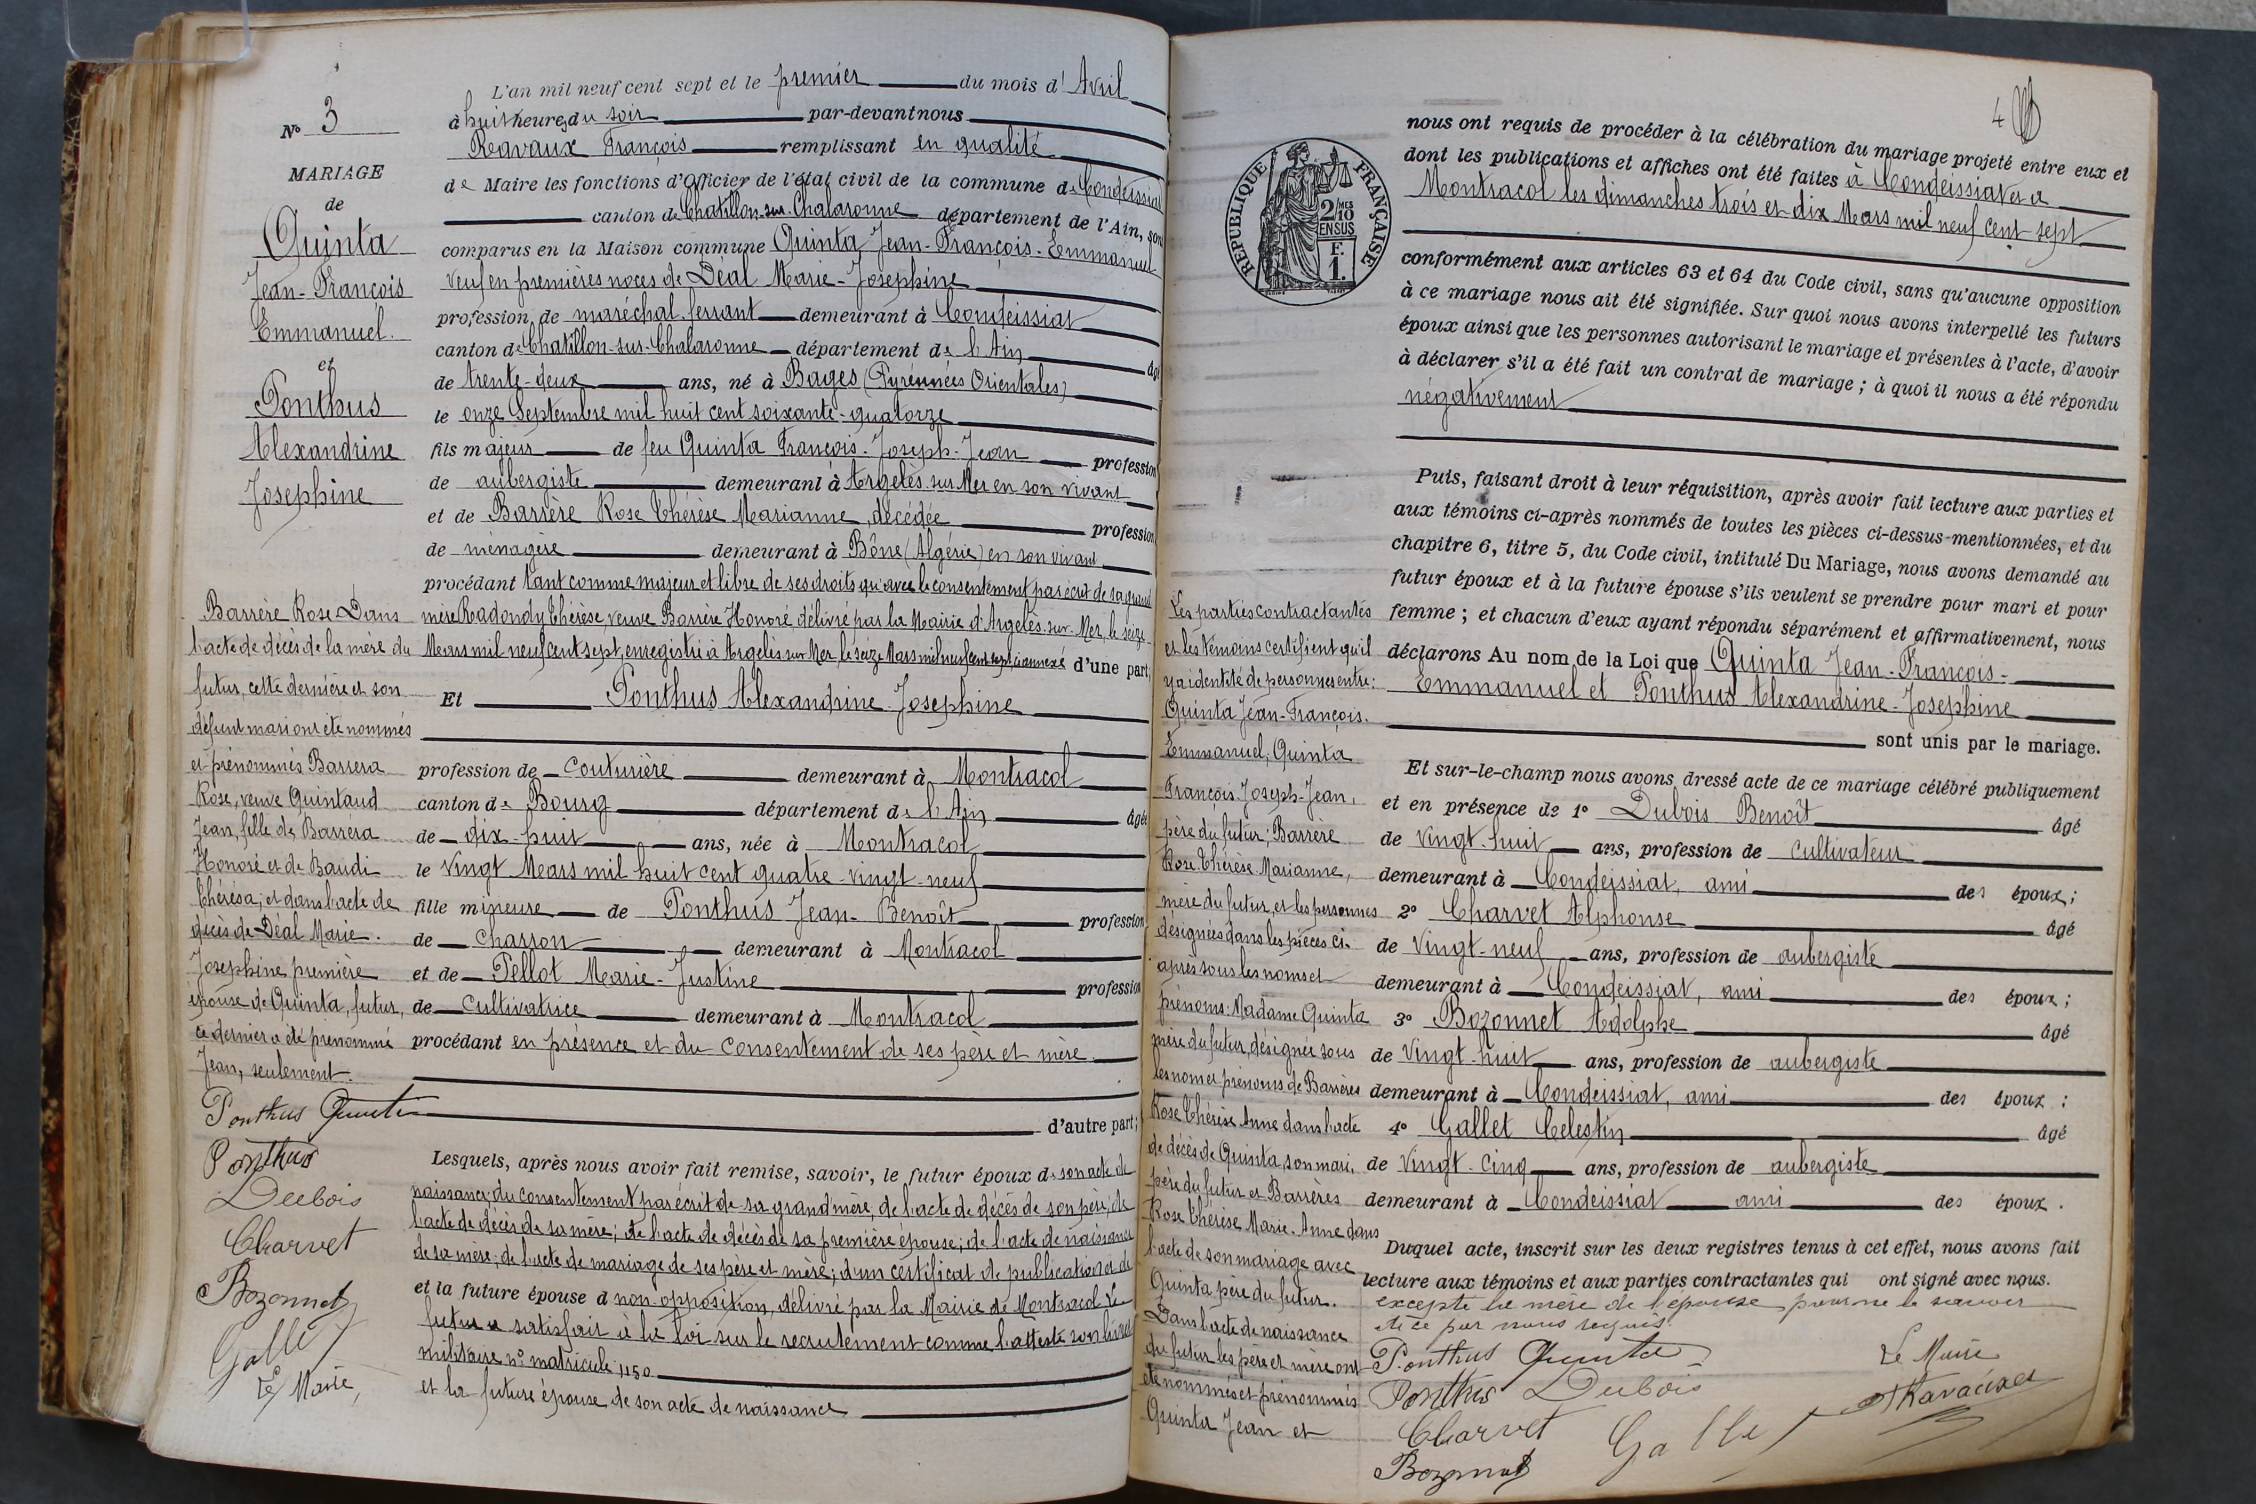 N° 3
MARIAGE
de
Quinta
Jean-François
Emmanuel.
et
Ponthus
Alexandrine
Josephine
L'an mil neuf cent sept et le premier du mois d' Avril
à huit heures du soir par-devant nous
Ravaux François remplissant en qualité
de Maire les fonctions d'Officier de l'état civil de la commune de Condeissiat
canton de Chatillon-sur-Chalaronne département de l'Ain, sont
comparus en la Maison commune Quinta Jean-François-Emmanuel
veuf en premières noces de Déal Marie-Josephine
profession de maréchal-ferrant demeurant à Condeissiat
canton de Chatillon-sur-Chalaronne département de l'Ain âgé
de trente-deux ans, né à Bages (Pyrénnées Orientales)
le onze Septembre mil huit cent soixante-quatorze
fils majeur de feu Quinta François-Joseph-Jean profession
de aubergiste demeurant à Argelès sur Mer en son vivant
et de Barrère Rose Thérèse Marianne, décédée profession
de ménagère demeurant à Bône (Algérie) en son vivant
procédant tant comme majeur et libre de ses droits qu'avec le consentement par écrit de sa grand
mère Radondy Thérèse, veuve Barrère Honoré, délivré par la Mairie d'Argelès-sur-Mer, le seize
Mars mil neuf cent sept, enregistré à Argelès sur Mer, le seize Mars mil neuf cent sept, ci annexé d'une part;
Et Ponthus Alexandrine-Josephine
profession de couturière demeurant à Montracol
canton de Bourg département de l'Ain âgée
de dix-huit ans, née à Montracol
le vingt Mars mil huit cent quatre-vingt-neuf
fille mineure de Ponthus Jean-Benoît profession
de charron demeurant à Montracol
et de Pellot Marie-Justine profession
de cultivatrice demeurant à Montracol
procédant en présence et du consentement de ses père et mère.
d'autre part;
Lesquels, après nous avoir fait remise, savoir, le futur époux de son acte de
naissance; du consentement par écrit de sa grand'mère, de l'acte de décès de son père; de
l'acte de décès de sa mère; de l'acte de décès de sa première épouse; de l'acte de naissance
de sa mère; de l'acte de mariage de ses père et mère; d'un certificat de publication et de
et la future épouse d non-opposition, délivré par la Mairie de Montracol. Le
futur a satisfait à la loi sur le recrutement comme l'atteste son livret
militaire n° matricule 1150
et la future épouse de son acte de naissance
Barrère Rose Dans
l'acte de décès de la mère du
futur, cette dernière et son
défunt mari ont été nommés
et prénommés Barrera
Rose, veuve Quintaud
Jean, fille de Barréra
Honoré et de Baudi
Thérèsa; et dans l'acte de
décès de Déal Marie-
Josephine première
épouse de Quinta, futur,
ce dernier a été prénommé
Jean, seulement.
Ponthus Quinta
Ponthus
Dubois
Charvet
Bozonnet
Gallet
Le Maire,
4
RÉPUBLIQUE FRANÇAISE
2/10 MES
EN SUS
F.
1.
nous ont requis de procéder à la célébration du mariage projeté entre eux et
dont les publications et affiches ont été faites à Condeissiat et à
Montracol les dimanches trois et dix Mars mil neuf cent-sept
conformément aux articles 63 et 64 du Code civil, sans qu'aucune opposition
à ce mariage nous ait été signifiée. Sur quoi nous avons interpellé les futurs
époux ainsi que les personnes autorisant le mariage et présentes à l'acte, d'avoir
à déclarer s'il a été fait un contrat de mariage; à quoi il nous a été répondu
négativement
Puis, faisant droit à leur réquisition, après avoir fait lecture aux parties et
aux témoins ci-après nommés de toutes les pièces ci-dessus-mentionnées, et du
chapitre 6, titre 5, du Code civil, intitulé Du Mariage, nous avons demandé au
futur époux et à la future épouse s'ils veulent se prendre pour mari et pour
femme; et chacun d'eux ayant répondu séparément et affirmativement, nous
déclarons Au nom de la Loi que Quinta Jean-François-
Emmanuel et Ponthus Alexandrine-Josephine
sont unis par le mariage.
Et sur-le-champ nous avons dressé acte de ce mariage célébré publiquement
et en présence de 1° Dubois Benoît âgé
de vingt-huit ans, profession de cultivateur
demeurant à Condeissiat, ami des époux;
2° Charvet Alphonse âgé
de vingt-neuf ans, profession de aubergiste
demeurant à Condeissiat, ami des époux;
3° Bozonnet Adolphe âgé
de vingt-huit ans, profession de aubergiste
demeurant à Condeissiat, ami des époux;
4° Gallet Celestin âgé
de vingt-cinq ans, profession de aubergiste
demeurant à Condeissiat ami des époux.
Duquel acte, inscrit sur les deux registres tenus à cet effet, nous avons fait
lecture aux témoins et aux parties contractantes qui ont signé avec nous.
excepté la mère de l'épouse pour ne le savoir
de ce par nous requis.
Ponthus Quinta
Ponthus Dubois
Charvet Gallet
Bozonnet
Le Maire
Ravaux
Les parties contractantes
et les témoins certifient qu'il
y a identité de personnes entre:
Quinta Jean-François-
Emmanuel; Quinta
François-Joseph-Jean,
père du futur; Barrère
Rose Thérèse Marianne,
mère du futur, et les personnes
désignées dans les pièces ci-
après sous les noms et
prénoms: Madame Quinta
mère du futur, désignée sous
les nom et prénoms de Barrères
Rose Thérèse Anne dans l'acte
de décès de Quinta, son mari,
père du futur et Barrères
Rose Thérèse Marie-Anne dans
l'acte de son mariage avec
Quinta père du futur.
Dans l'acte de naissance
du futur les père et mère ont
été nommés et prénommés
Quinta Jean et